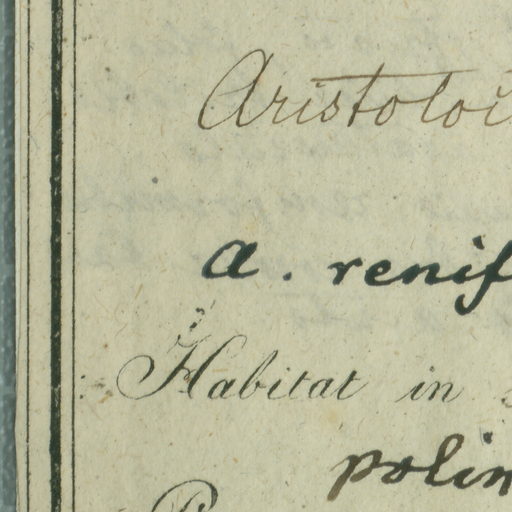 Aristoloi
a. renif
Habitat in
polin